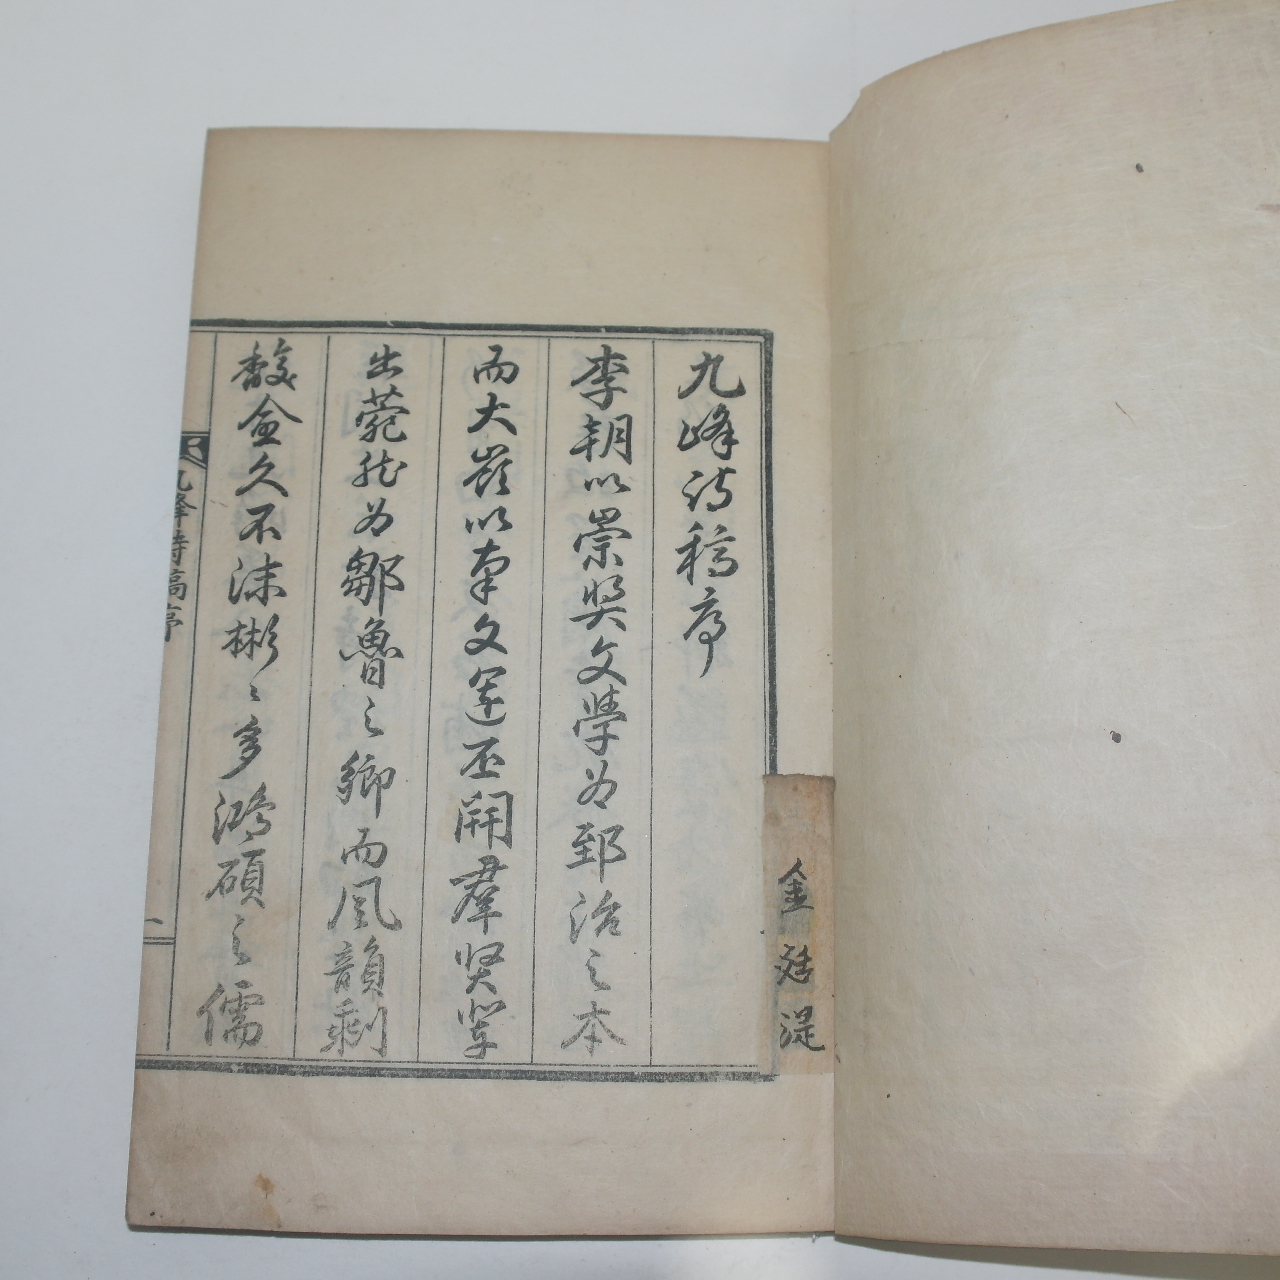 九峰诗稿序
李朝以崇奨文學为郅治之本
而大嶺以南文運丕開羣贤輩
出蔚然为鄒魯之鄉而風韻剩
馥愈久不沫彬〻多鴻碩之儒
九峰詩稿序
一
金 湜